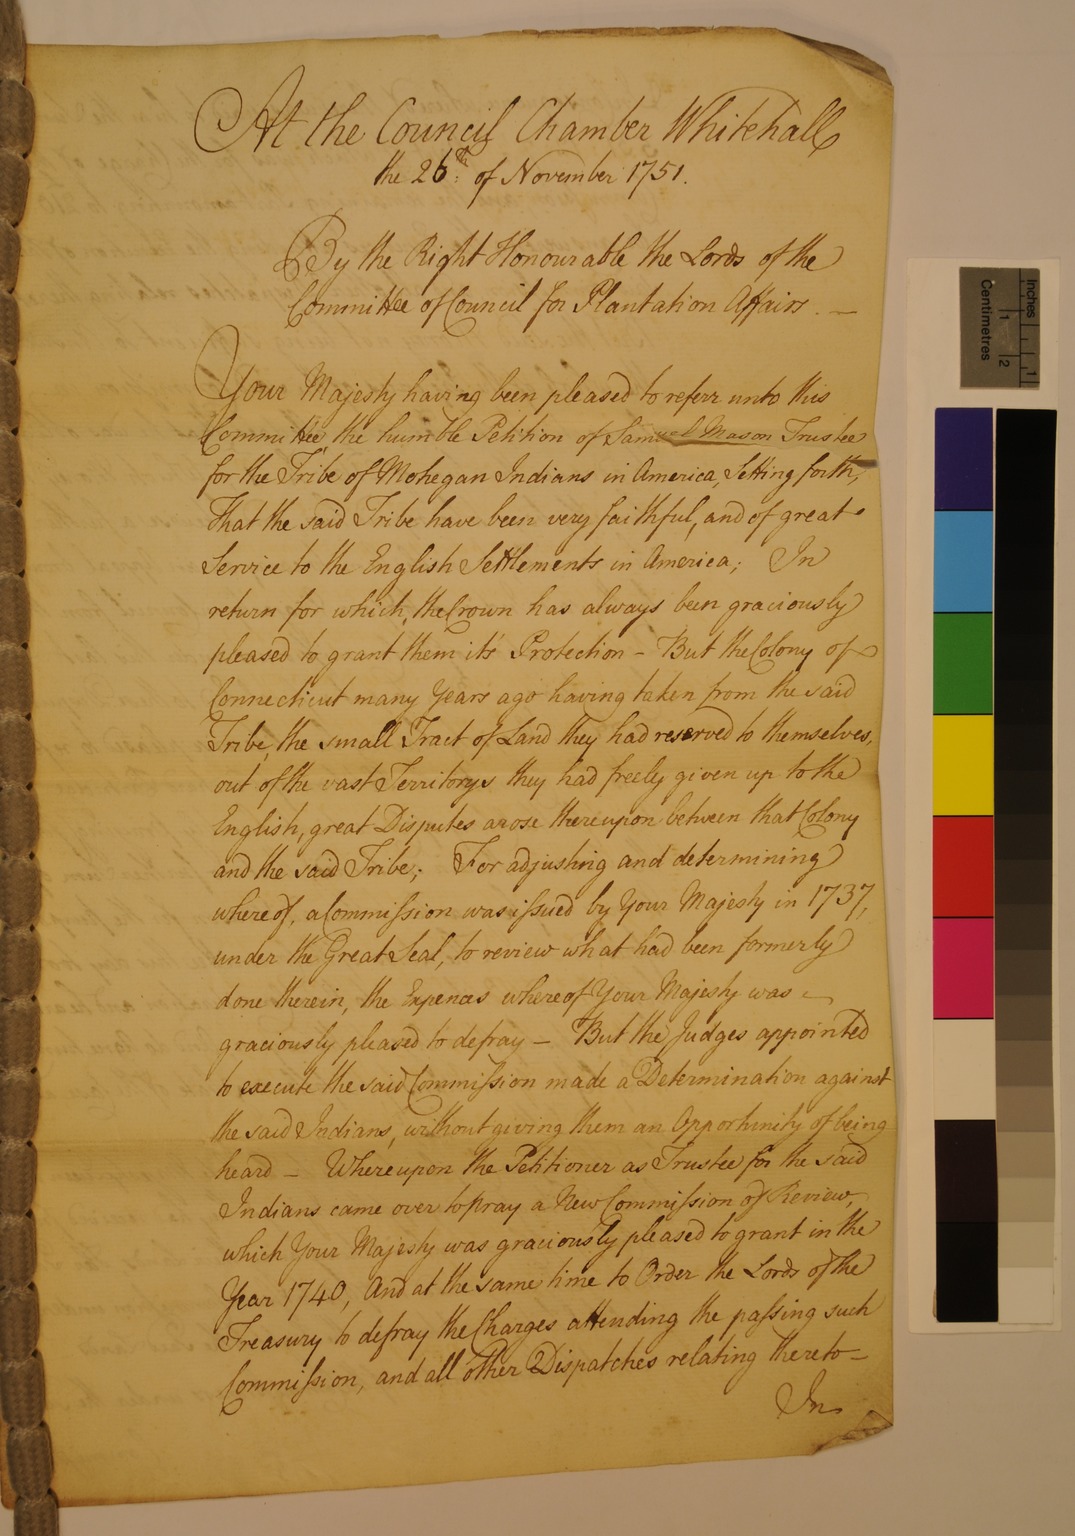 At the Council Chamber Whitehall
the 26th: of November 1751.
By the Right Honourable the Lords of the
Committee of Council for Plantation Affairs. —
Your Majesty having been pleased to referr unto this
Committee the humble Petition of Samuel Mason Trustee
for the Tribe of Mohegan Indians in America, Setting forth,
That the said Tribe have been very faithful, and of great
Service to the English Settlements in America; In
return for which, the Crown has always been graciously
pleased to grant them it's Protection – But the Colony of
Connecticut many Years ago having taken from the said
Tribe, the small Tract of Land they had reserved to themselves,
out of the vast Territorys they had freely given up to the
English, great Disputes arose thereupon between that Colony
and the said Tribe; For adjusting and determining
whereof, a Commission was issued by Your Majesty in 1737,
under the Great Seal, to review what had been formerly
done therein, the Expences whereof Your Majesty was
graciously pleased to defray – But the Judges appointed
to execute the said Commission made a Determination against
the said Indians, without giving them an Opportunity of being
heard – Whereupon the Petitioner as Trustee for the said
Indians came over to pray a New Commission of Review,
which Your Majesty was graciously pleased to grant in the
Year 1740, And at the same time to Order the Lords of the
Treasury to defray the Charges attending the passing such
Commission, and all other Dispatches relating thereto –
In
Inches
1
Centimetres
1
2